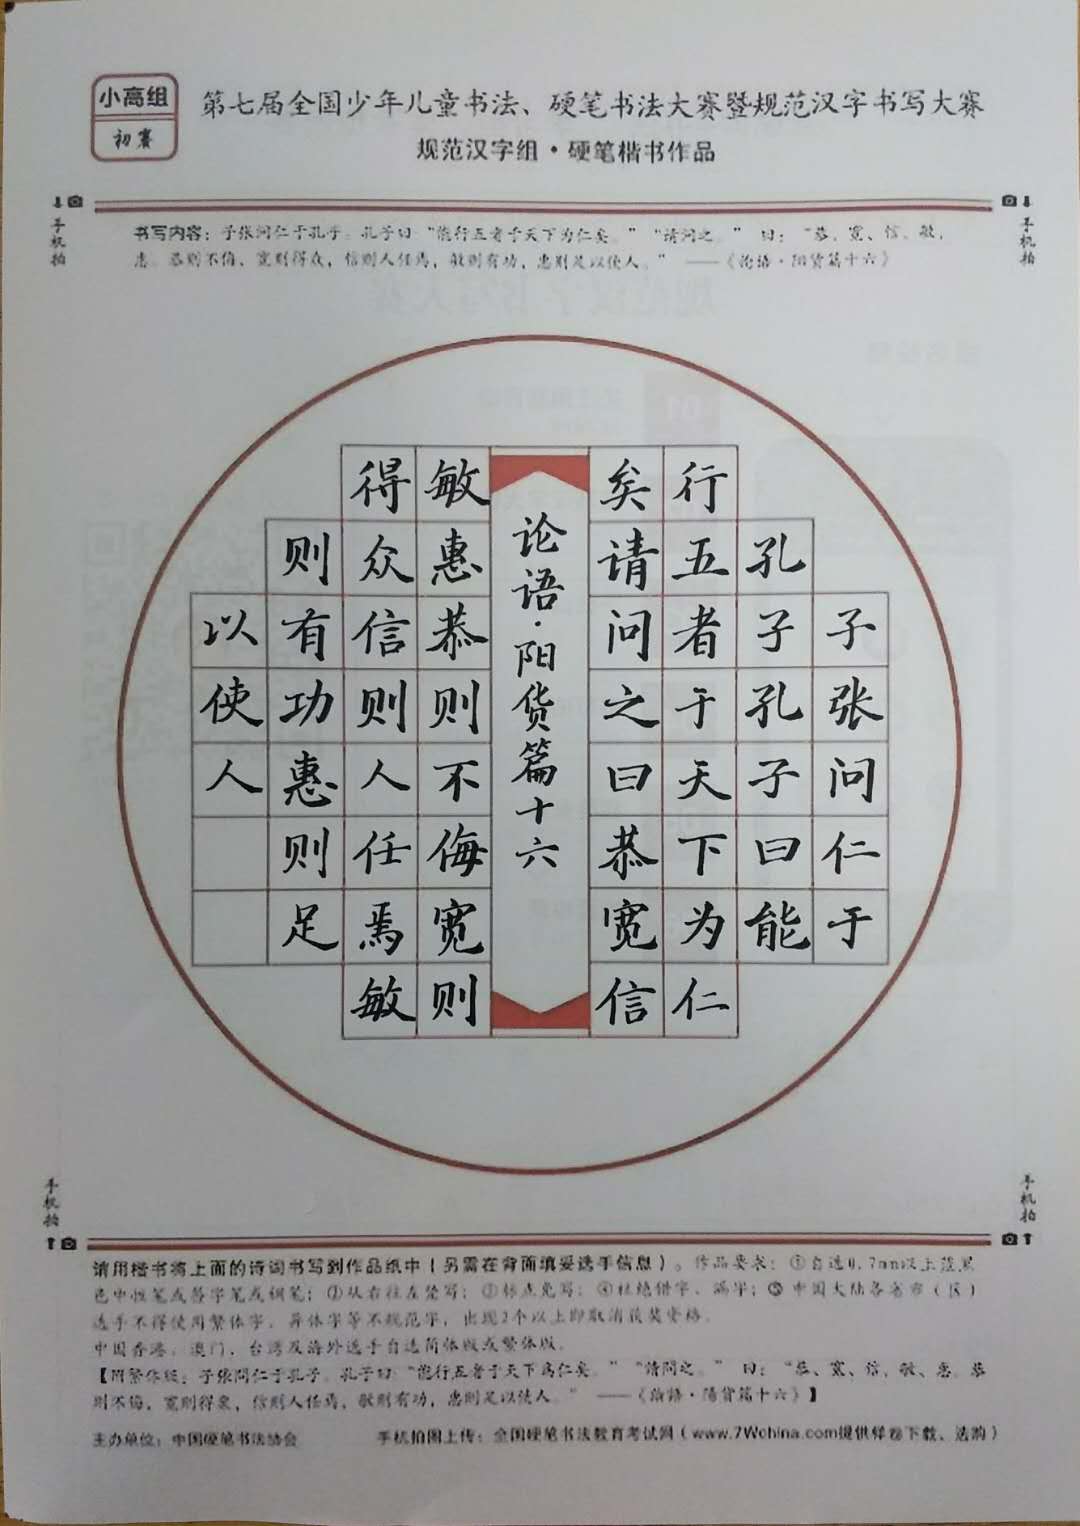 小高组
初赛
第七届全国少年儿童书法、硬笔书法大赛暨规范汉字书写大赛
规范汉字组·硬笔楷书作品
手机拍
手机拍
书写内容：子张问仁于孔子。孔子曰“能行五者于天下为仁矣。”“请问之。”曰：“恭、宽、信、敏、
惠。恭则不侮，宽则得众，信则人任焉，敏则有功，惠则足以使人。”——《论语·阳货篇十六》
子张问仁于
孔子孔子曰能
行五者于天下为仁
矣请问之曰恭宽信
论语·阳货篇十六
敏惠恭则不侮宽则
得众信则人任焉敏
则有功惠则足
以使人
手机拍
手机拍
请用楷书将上面的诗词书写到作品纸中（另需在背面填妥选手信息）。作品要求：①自选0.7mm以上蓝黑
色中性笔或签字笔或钢笔；②从右往左竖写；③标点免写；④杜绝错字、漏字；⑤中国大陆各省市（区）
选手不得使用繁体字、异体字等不规范字，出现2个以上即取消获奖资格。
中国香港、澳门、台湾及海外选手自选简体版或繁体版。
【附繁体版：子张問仁于孔子。孔子曰“能行五者于天下爲仁矣。”“請問之。”曰：“恭、寬、信、敏、惠。恭
則不侮，寬則得衆，信則人任焉，敏則有功，惠則足以使人。”——《論語·陽貨篇十六》】
主办单位：中国硬笔书法协会
手机拍图上传：全国硬笔书法教育考试网（www.7Wchina.com提供样卷下载、选购）